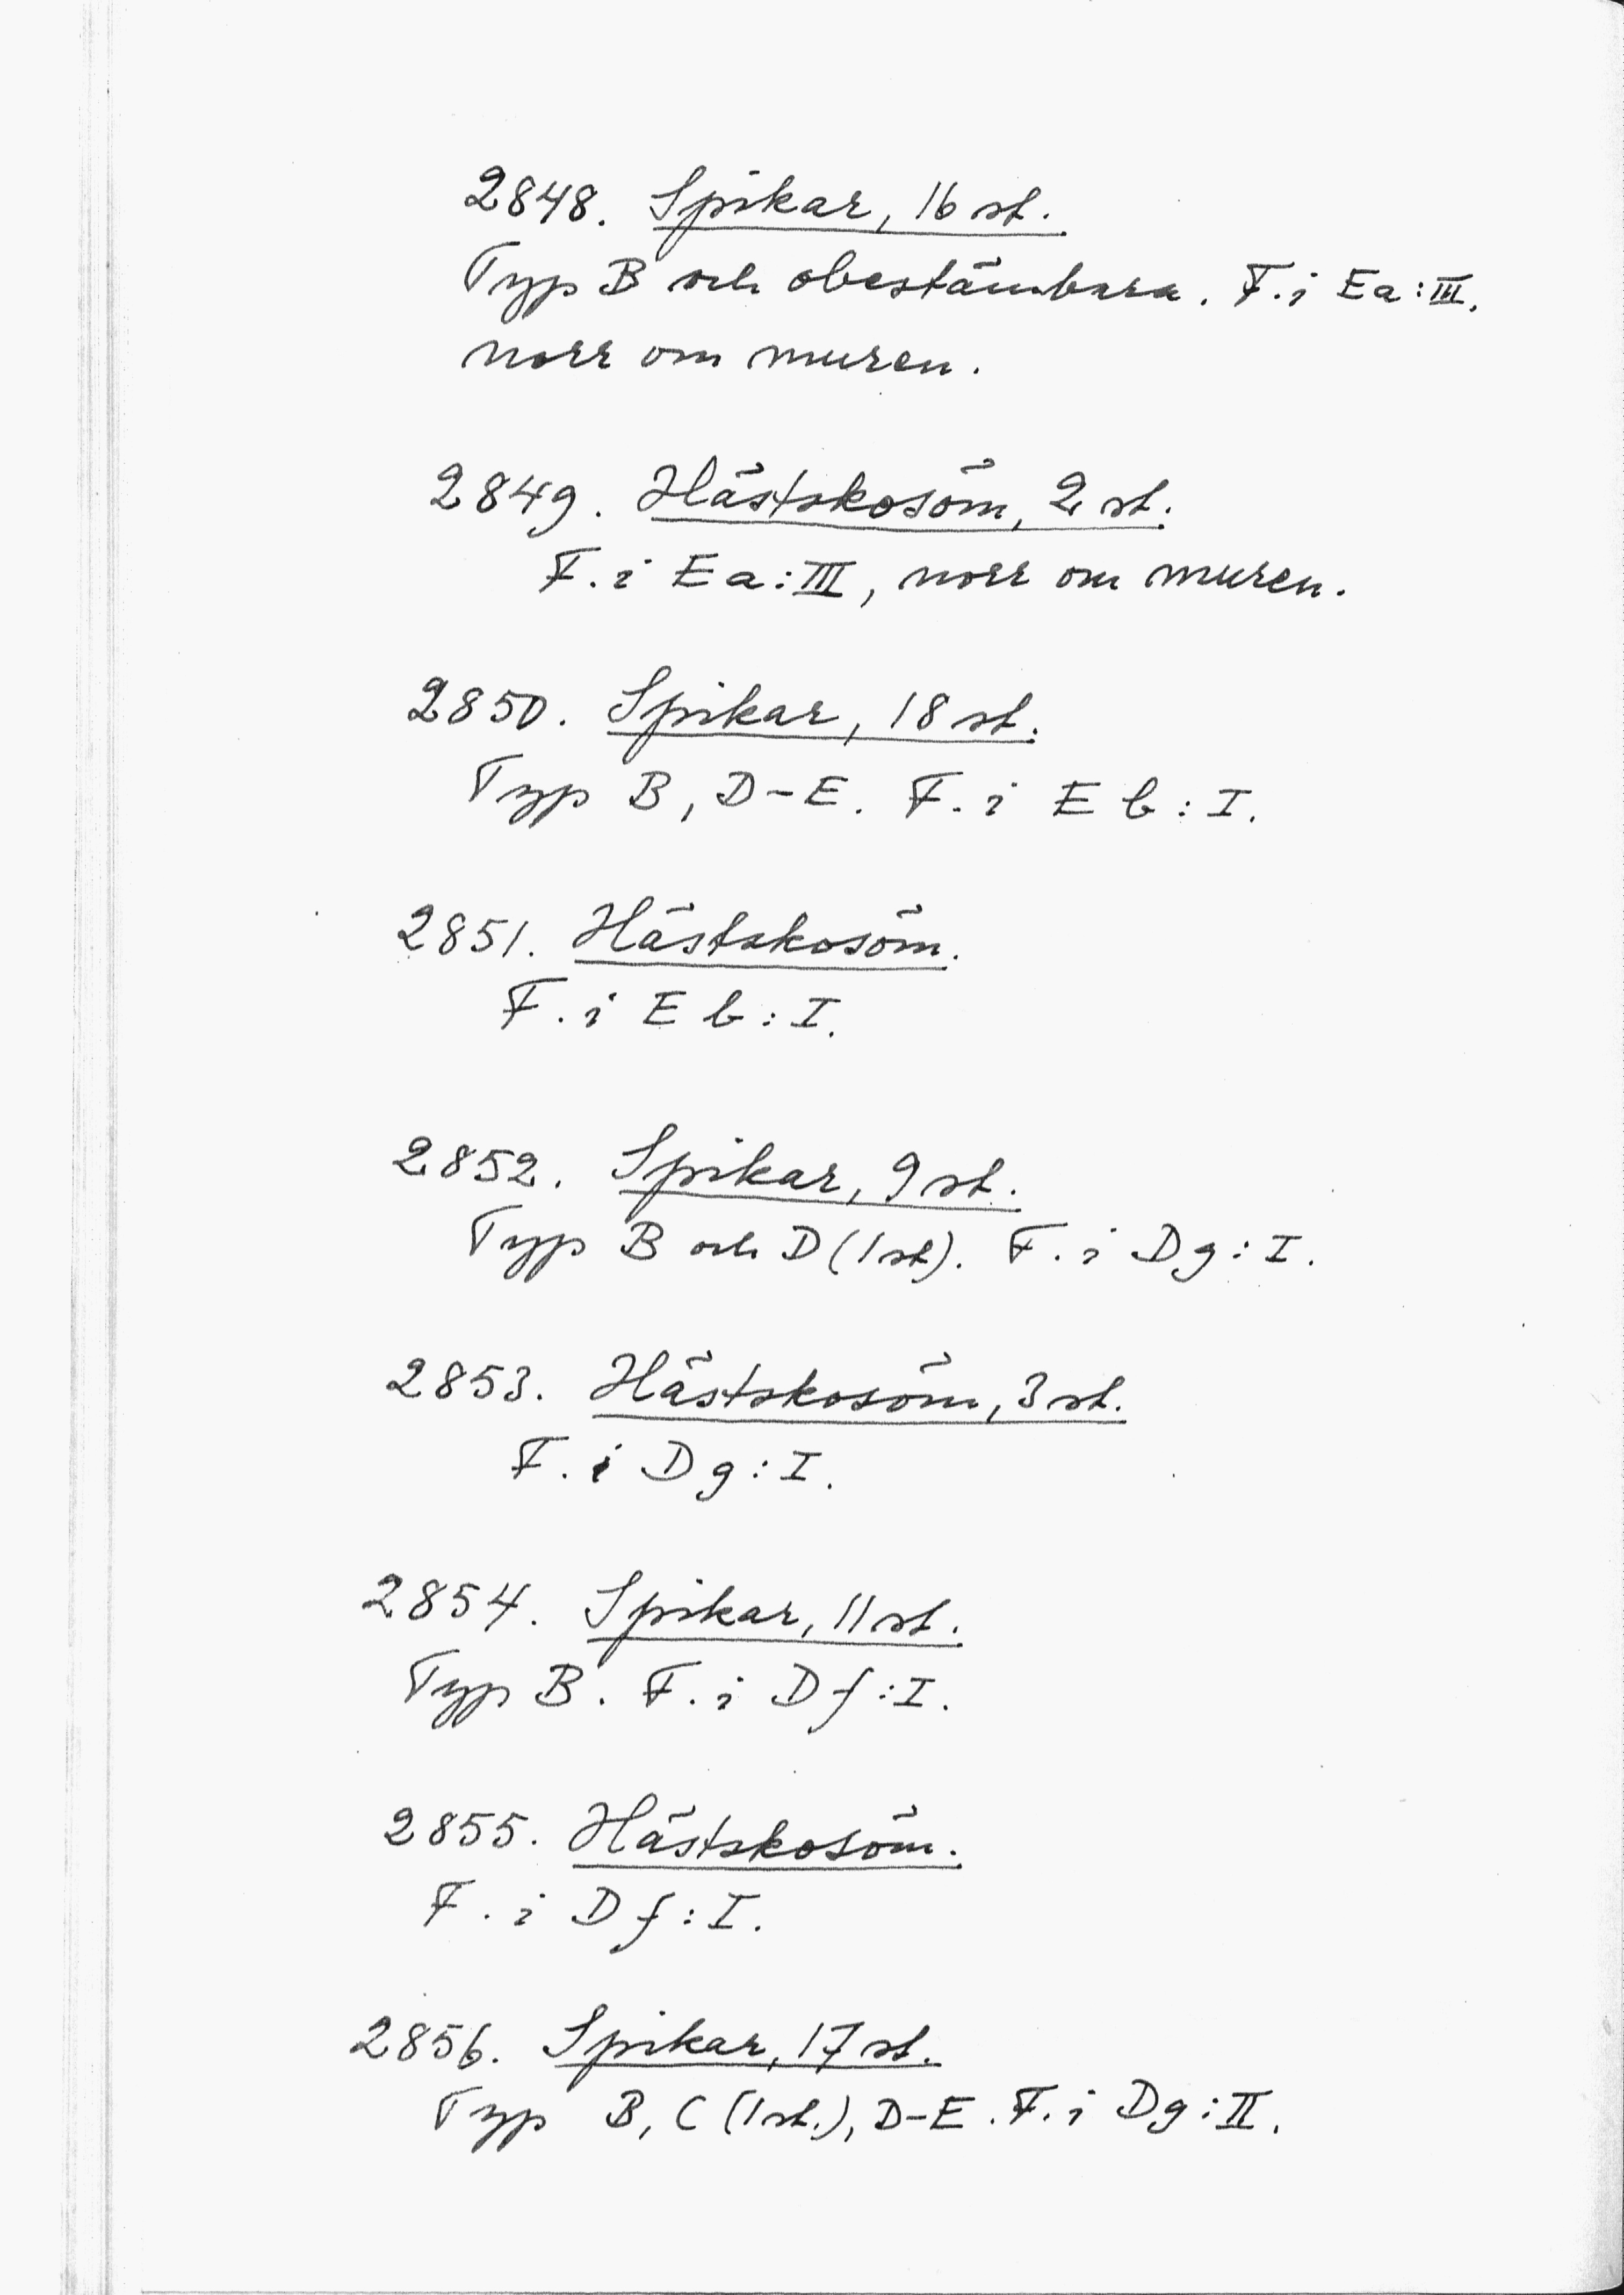 2848. Spikar, 16 st.
Typ B och obestämbara. F. i Ea:III,
norr om muren.
2849. Hästskosöm, 2 st.
F. i Ea:III, norr om muren.
2850. Spikar, 18 st.
Typ B, D-E. F. i Eb:I.
2851. Hästskosöm.
F. i Eb:I.
2852. Spikar, 9 st.
Typ B och D (1 st). F. i Dg:I.
2853. Hästskosöm, 3 st.
F. i Dg:I.
2854. Spikar, 11 st.
Typ B. F. i Df:I.
2855. Hästskosöm.
F. i Df:I.
2856. Spikar, 17 st.
Typ B, C (1 st.), D-E. F. i Dg:II.